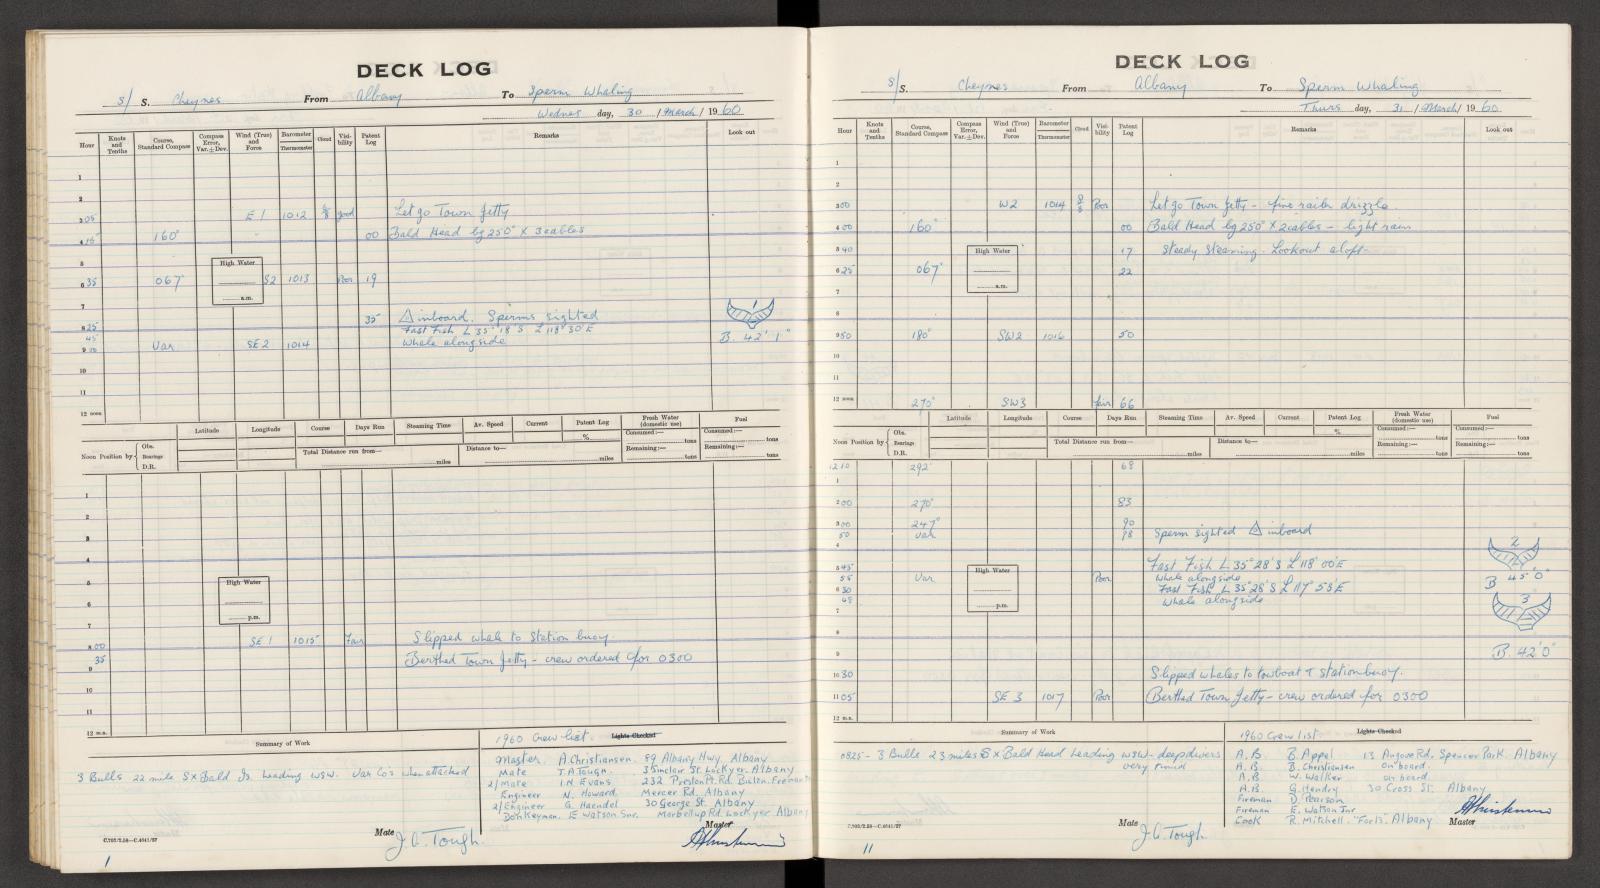 DECK LOG
s/ S. Cheynes From Albany To Sperm Whaling
Wednes day, 30 / March / 19 60
Hour Knots and Tenths Course, Standard Compass Compass Error, Var.±Dev. Wind (True) and Force Barometer Thermometer Cloud Visibility Patent Log Remarks Look out
1
2
3 05 E 1 1012 good Let go Town Jetty
4 15 160° 00 Bald Head bg 250° x 3 cables
5 High Water
6 35 067° S2 1013 Poor 19
a.m.
7
8 25 35 inboard. Sperms sighted 1
45 Fast Fish L 35° 18' S L 118° 30' E
9 10 Var SE 2 1014 Whale alongside B. 42' 1"
10
11
12 noon
Noon Position by Obs. Bearings D.R. Latitude Longitude Course Days Run Steaming Time Av. Speed Current Patent Log % Fresh Water (domestic use) Fuel
Consumed:— tons Consumed:— tons
Total Distance run from— miles Distance to— miles Remaining:— tons Remaining:— tons
1
2
3
4
5 High Water
6
p.m.
7
8 00 SE 1 1015 Fair Slipped whale to Station buoy
35 Berthed Town Jetty - crew ordered for 0300
9
10
11
12 m.n.
Summary of Work
3 Bulls 22 mile S x Bald Is. heading WSW. Var Co's when attached
1960 Crew list Lights Checked
Master. A. Christiansen. 89 Albany Hwy. Albany
Mate T.A. Tough. 3 Sinclair St. Lockyer. Albany
2/Mate I.N. Evans. 232 Preston Pt. Rd. Bicton. Freman
Engineer N. Howard. Mercer Rd. Albany
2/Engineer G. Haendel 30 George St. Albany
Donkeyman. E Watson Snr. Morbellup Rd. Lockyer Albany
Mate J.A. Tough. Master
C.702/2.58—C.4641/57
1
DECK LOG
s/ S. Cheynes From Albany To Sperm Whaling
Thurs day, 31 / March / 19 60
Hour Knots and Tenths Course, Standard Compass Compass Error, Var.±Dev. Wind (True) and Force Barometer Thermometer Cloud Visibility Patent Log Remarks Look out
1
2
3 00 W2 1014 8/8 Poor Let go Town Jetty - fine rain drizzle.
4 00 160° 00 Bald Head bg 250° x 2 cables - light rain
5 40 High Water 17 Steady Steaming. Lookout aloft
6 25 067° 22
a.m.
7
8
9 50 180° SW2 1016 50
10
11
12 noon 270° SW3 fair 66
Noon Position by Obs. Bearings D.R. Latitude Longitude Course Days Run Steaming Time Av. Speed Current Patent Log % Fresh Water (domestic use) Fuel
Consumed:— tons Consumed:— tons
Total Distance run from— miles Distance to— miles Remaining:— tons Remaining:— tons
12 10 292° 68
1
2 00 270° 83
3 00 247° 90
50 Var 98 Sperm sighted inboard
4 2
5 45 High Water Fast Fish L 35° 28' S L 118° 00' E
55 Var Poor Whale alongside B 45' 0"
6 30 Fast Fish L 35° 28' S L 117° 58' E
48 p.m. Whale alongside 3
7
8
9 B. 42' 0"
10 30 Slipped whales to towboat & station buoy.
11 05 SE 3 1017 Poor Berthed Town Jetty - crew ordered for 0300
12 m.n.
Summary of Work
0825 - 3 Bulls 23 miles S x Bald Head heading WSW - deep divers
very timid
1960 Crew list Lights Checked
A.B. B. Appel 13 Angove Rd. Spencer Park. Albany
A.B. B. Christiansen on board.
A.B. W. Walker on board.
A.B. G. Hendry 30 Cross St. Albany
Fireman D. Pearson
Fireman E. Watson Jnr.
Cook R. Mitchell. "Forts" Albany
Mate J.A. Tough Master
C.702/2.58—C.4641/57
11